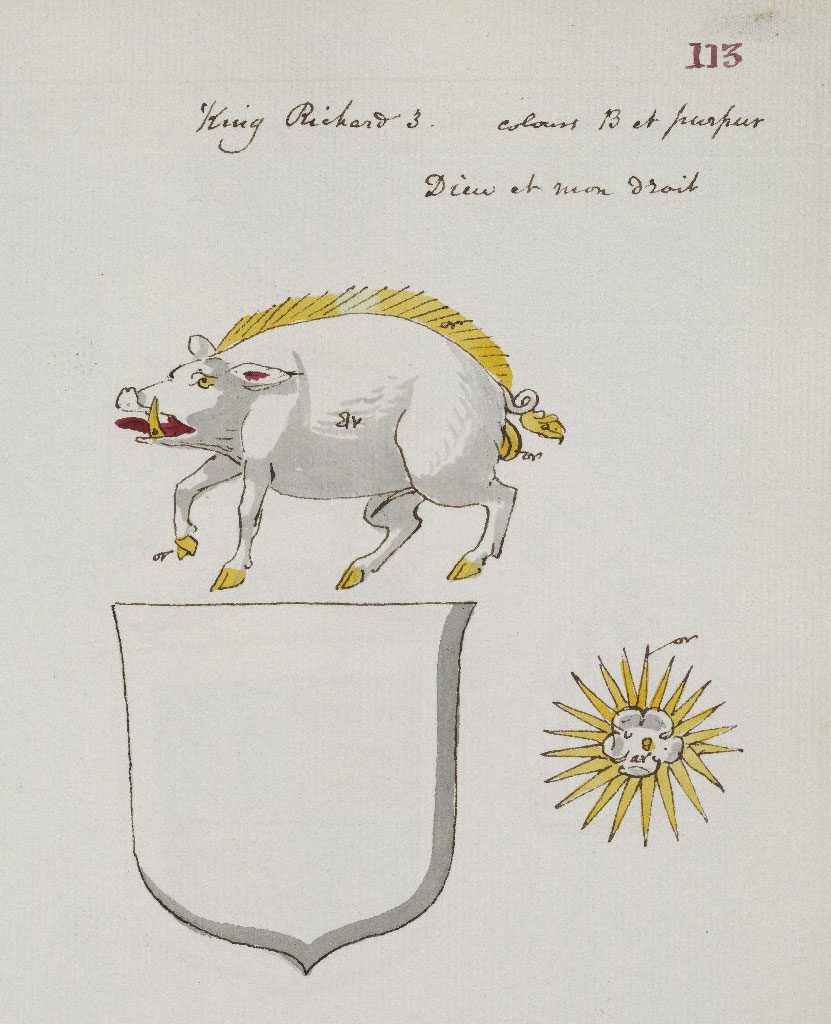 113
King Richard 3. colours B et purpur
Dieu et mon droit
or
Ar
or
or
or
ar